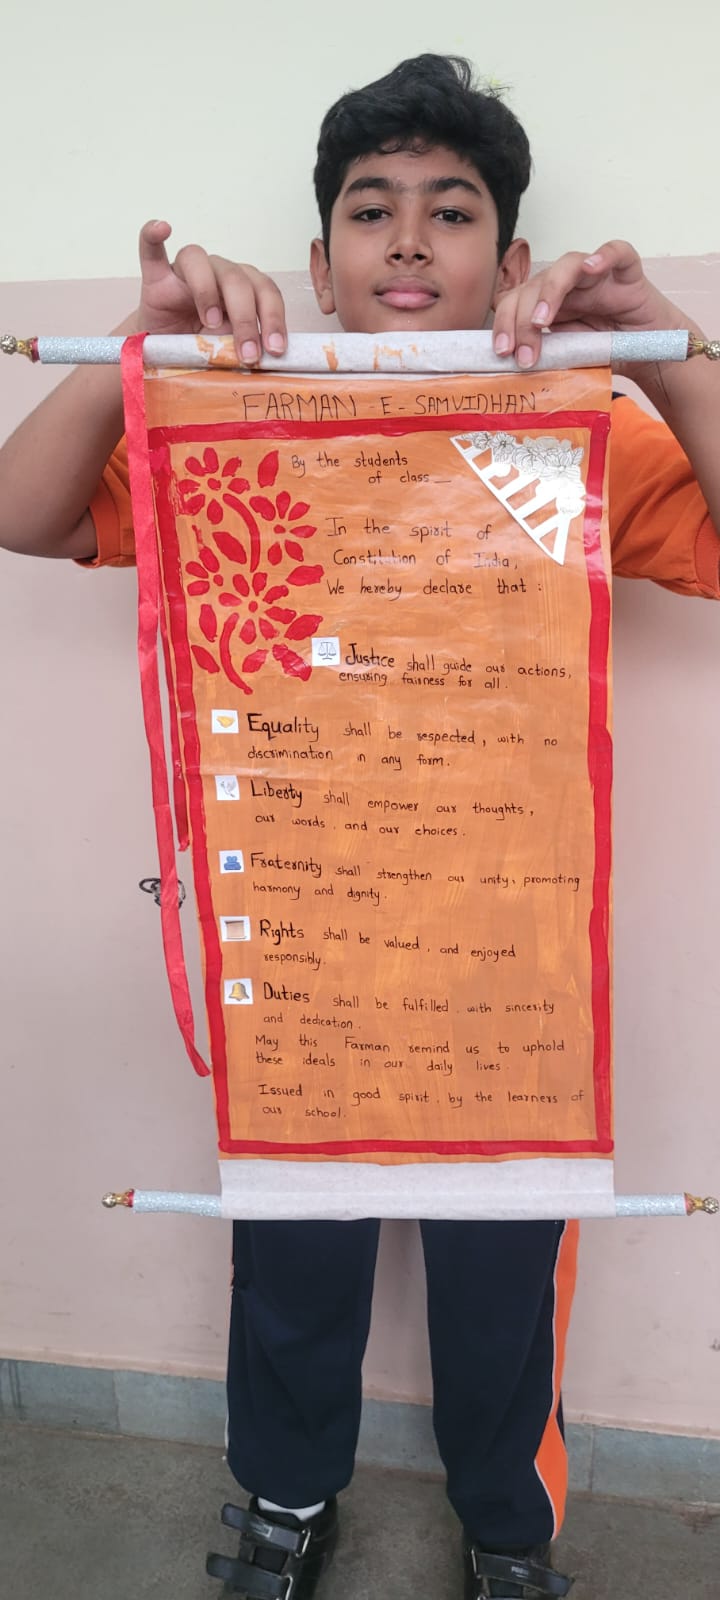 "FARMAN-E-SAMVIDHAN"
By the students
of class_
In the spirit of
Constitution of India,
We hereby declare that :
Justice shall guide our actions,
ensuring fairness for all.
Equality shall be respected, with no
discrimination in any form.
Liberty shall empower our thoughts,
our words, and our choices.
Fraternity shall strengthen our unity, promoting
harmony and dignity.
Rights shall be valued, and enjoyed
responsibly.
Duties shall be fulfilled, with sincerity
and dedication.
May this Farman remind us to uphold
these ideals in our daily lives.
Issued in good spirit, by the learners of
our school.